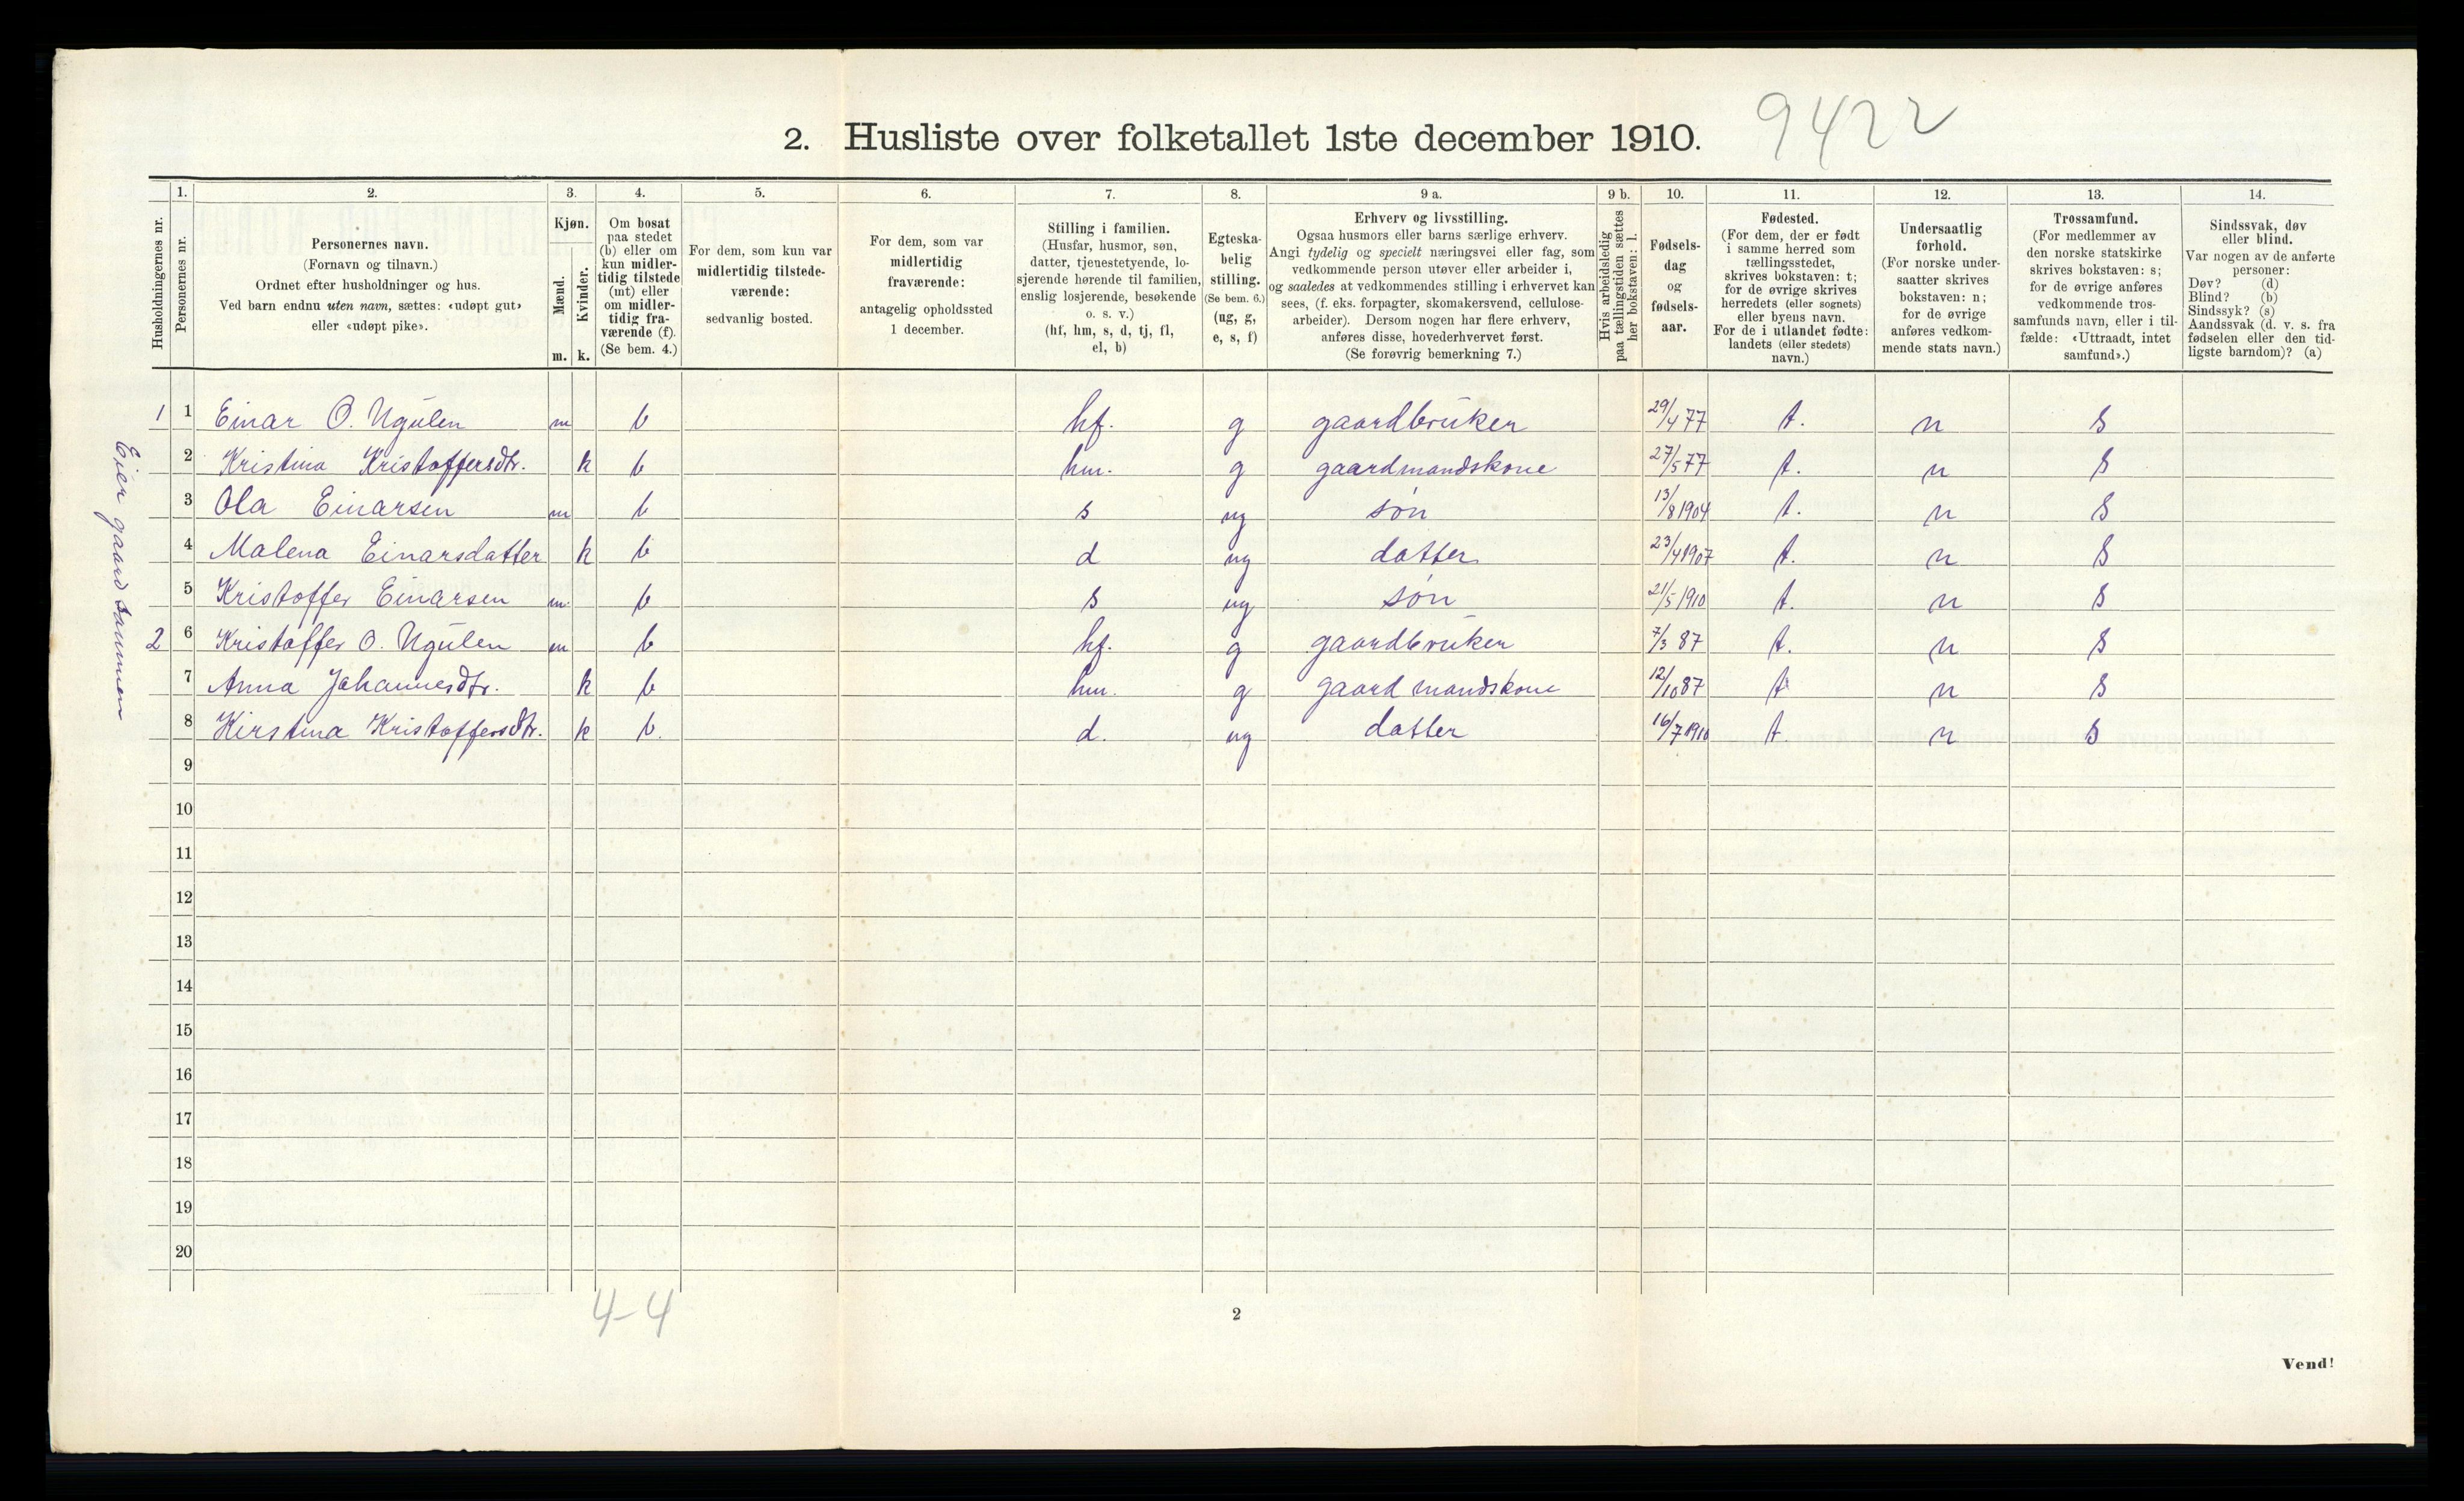 2. Husliste over folketallet 1ste december 1910. 9422
Husholdningernes nr.
1. Personernes nr.
2. Personernes navn.
(Fornavn og tilnavn.)
Ordnet efter husholdninger og hus.
Ved barn endnu uten navn, sættes: «udøpt gut»
eller «udøpt pike».
3. Kjøn.
Mænd. Kvinder.
m. k.
4. Om bosat
paa stedet
(b) eller om
kun midler-
tidig tilstede
(mt) eller
om midler-
tidig fra-
værende (f).
(Se bem. 4.)
5. For dem, som kun var
midlertidig tilstede-
værende:
sedvanlig bosted.
6. For dem, som var
midlertidig
fraværende:
antagelig opholdssted
1 december.
7. Stilling i familien.
(Husfar, husmor, søn,
datter, tjenestetyende, lo-
sjerende hørende til familien,
enslig losjerende, besøkende
o. s. v.)
(hf, hm, s, d, tj, fl,
el, b)
8. Egteska-
belig
stilling.
(Se bem. 6.)
(ug, g,
e, s, f)
9 a. Erhverv og livsstilling.
Ogsaa husmors eller barns særlige erhverv.
Angi tydelig og specielt næringsvei eller fag, som
vedkommende person utøver eller arbeider i,
og saaledes at vedkommendes stilling i erhvervet kan
sees, (f. eks. forpagter, skomakersvend, cellulose-
arbeider). Dersom nogen har flere erhverv,
anføres disse, hovederhvervet først.
(Se forøvrig bemerkning 7.)
9 b. Hvis arbeidsledig
paa tællingstiden sættes
her bokstaven: l.
10. Fødsels-
dag
og
fødsels-
aar.
11. Fødested.
(For dem, der er født
i samme herred som
tællingsstedet,
skrives bokstaven: t;
for de øvrige skrives
herredets (eller sognets)
eller byens navn.
For de i utlandet fødte:
landets (eller stedets)
navn.)
12. Undersaatlig
forhold.
(For norske under-
saatter skrives
bokstaven: n;
for de øvrige
anføres vedkom-
mende stats navn.)
13. Trossamfund.
(For medlemmer av
den norske statskirke
skrives bokstaven: s;
for de øvrige anføres
vedkommende tros-
samfunds navn, eller i til-
fælde: «Uttraadt, intet
samfund».)
14. Sindssvak, døv
eller blind.
Var nogen av de anførte
personer:
Døv? (d)
Blind? (b)
Sindssyk? (s)
Aandssvak (d. v. s. fra
fødselen eller den tid-
ligste barndom)? (a)
1 1 Einar O. Ugulen m b hf. g gaardbruker 29/4 77 t. n s
2 Kristina Kristoffersdtr. k b hm. g gaardmandskone 27/5 77 t. n s
3 Ola Einarsen m b s ug søn 13/8 1904 t. n s
4 Malena Einarsdatter k b d ug datter 23/4 1907 t. n s
5 Kristoffer Einarsen m. b s ug søn 21/5 1910 t. n s
2 6 Kristoffer O. Ugulen m b hf. g gaardbruker 7/3 87 t. n s
7 Anna Johannesdtr. k b hm. g gaardmandskone 12/10 87 t n s
8 Kirstina Kristoffersdtr. k b. d. ug datter 16/7 1910 t. n s
9
10
11
12
13
14
15
16
17
18
19
20
Eier gaard sammen
4-4
2
Vend!